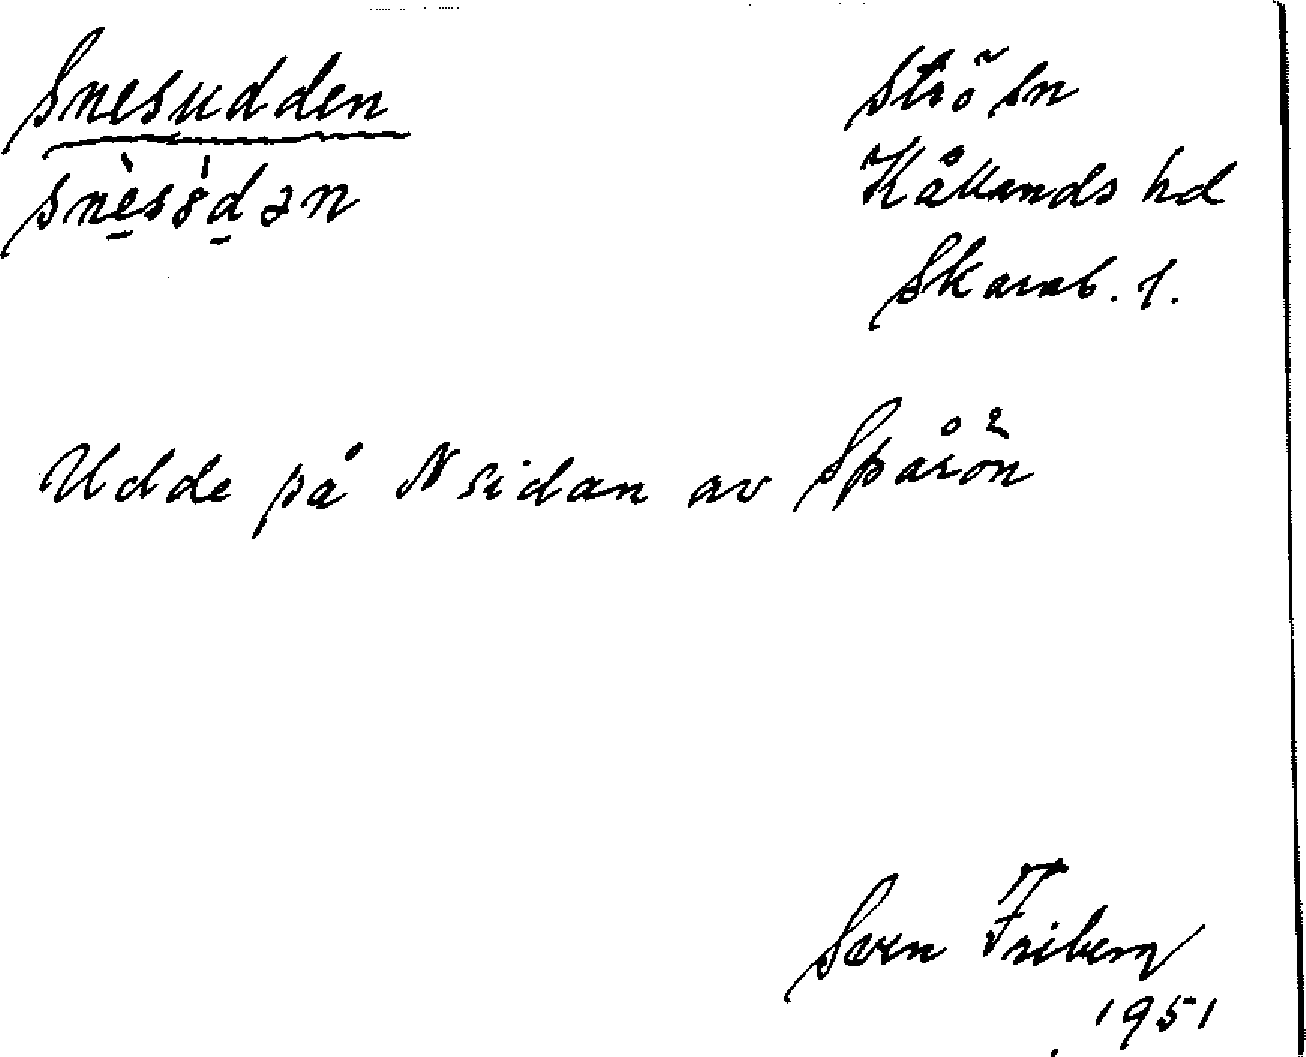 Snesudden
Strö sn
Kållands hd
Skarab. l.
Udde på N sidan av Spårön
Sven Friberg
1951